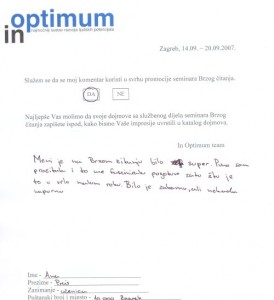 optimum
in
Zagreb, 14.09. – 20.09.2007.
Slažem se da se moj komentar koristi u svrhu promocije seminara Brzog čitanja.
DA NE
Najljepše Vas molimo da svoje dojmove sa službenog dijela seminara Brzog
čitanja zapišete ispod, kako bismo Vaše impresije uvrstili u katalog dojmova.
In Optimum team
Meni je na Brzom čitanju bilo super. Puno sam
pročitala i to me fasciniralo pogotovo zato što je
to u vrlo malom roku. Bilo je zabavno, ali nekada
naporno
Ime - Ana
Prezime -
Zanimanje - učenica
Poštanski broj i mjesto - 10 000 Zagreb